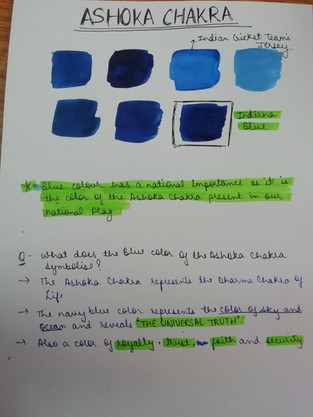 ASHOKA CHAKRA
Indian Cricket Team's
Jersey
Indiana
Blue
* Blue colour has a national importance as it is
the color of the Ashoka Chakra present in our
national flag
Q - What does the Blue color of the Ashoka Chakra
symbolise?
→ The Ashoka Chakra represents the Dharma Chakra of
Life
→ The navy blue color represents the color of sky and
ocean and reveals "THE UNIVERSAL TRUTH"
→ Also a color of royalty, trust, faith and security